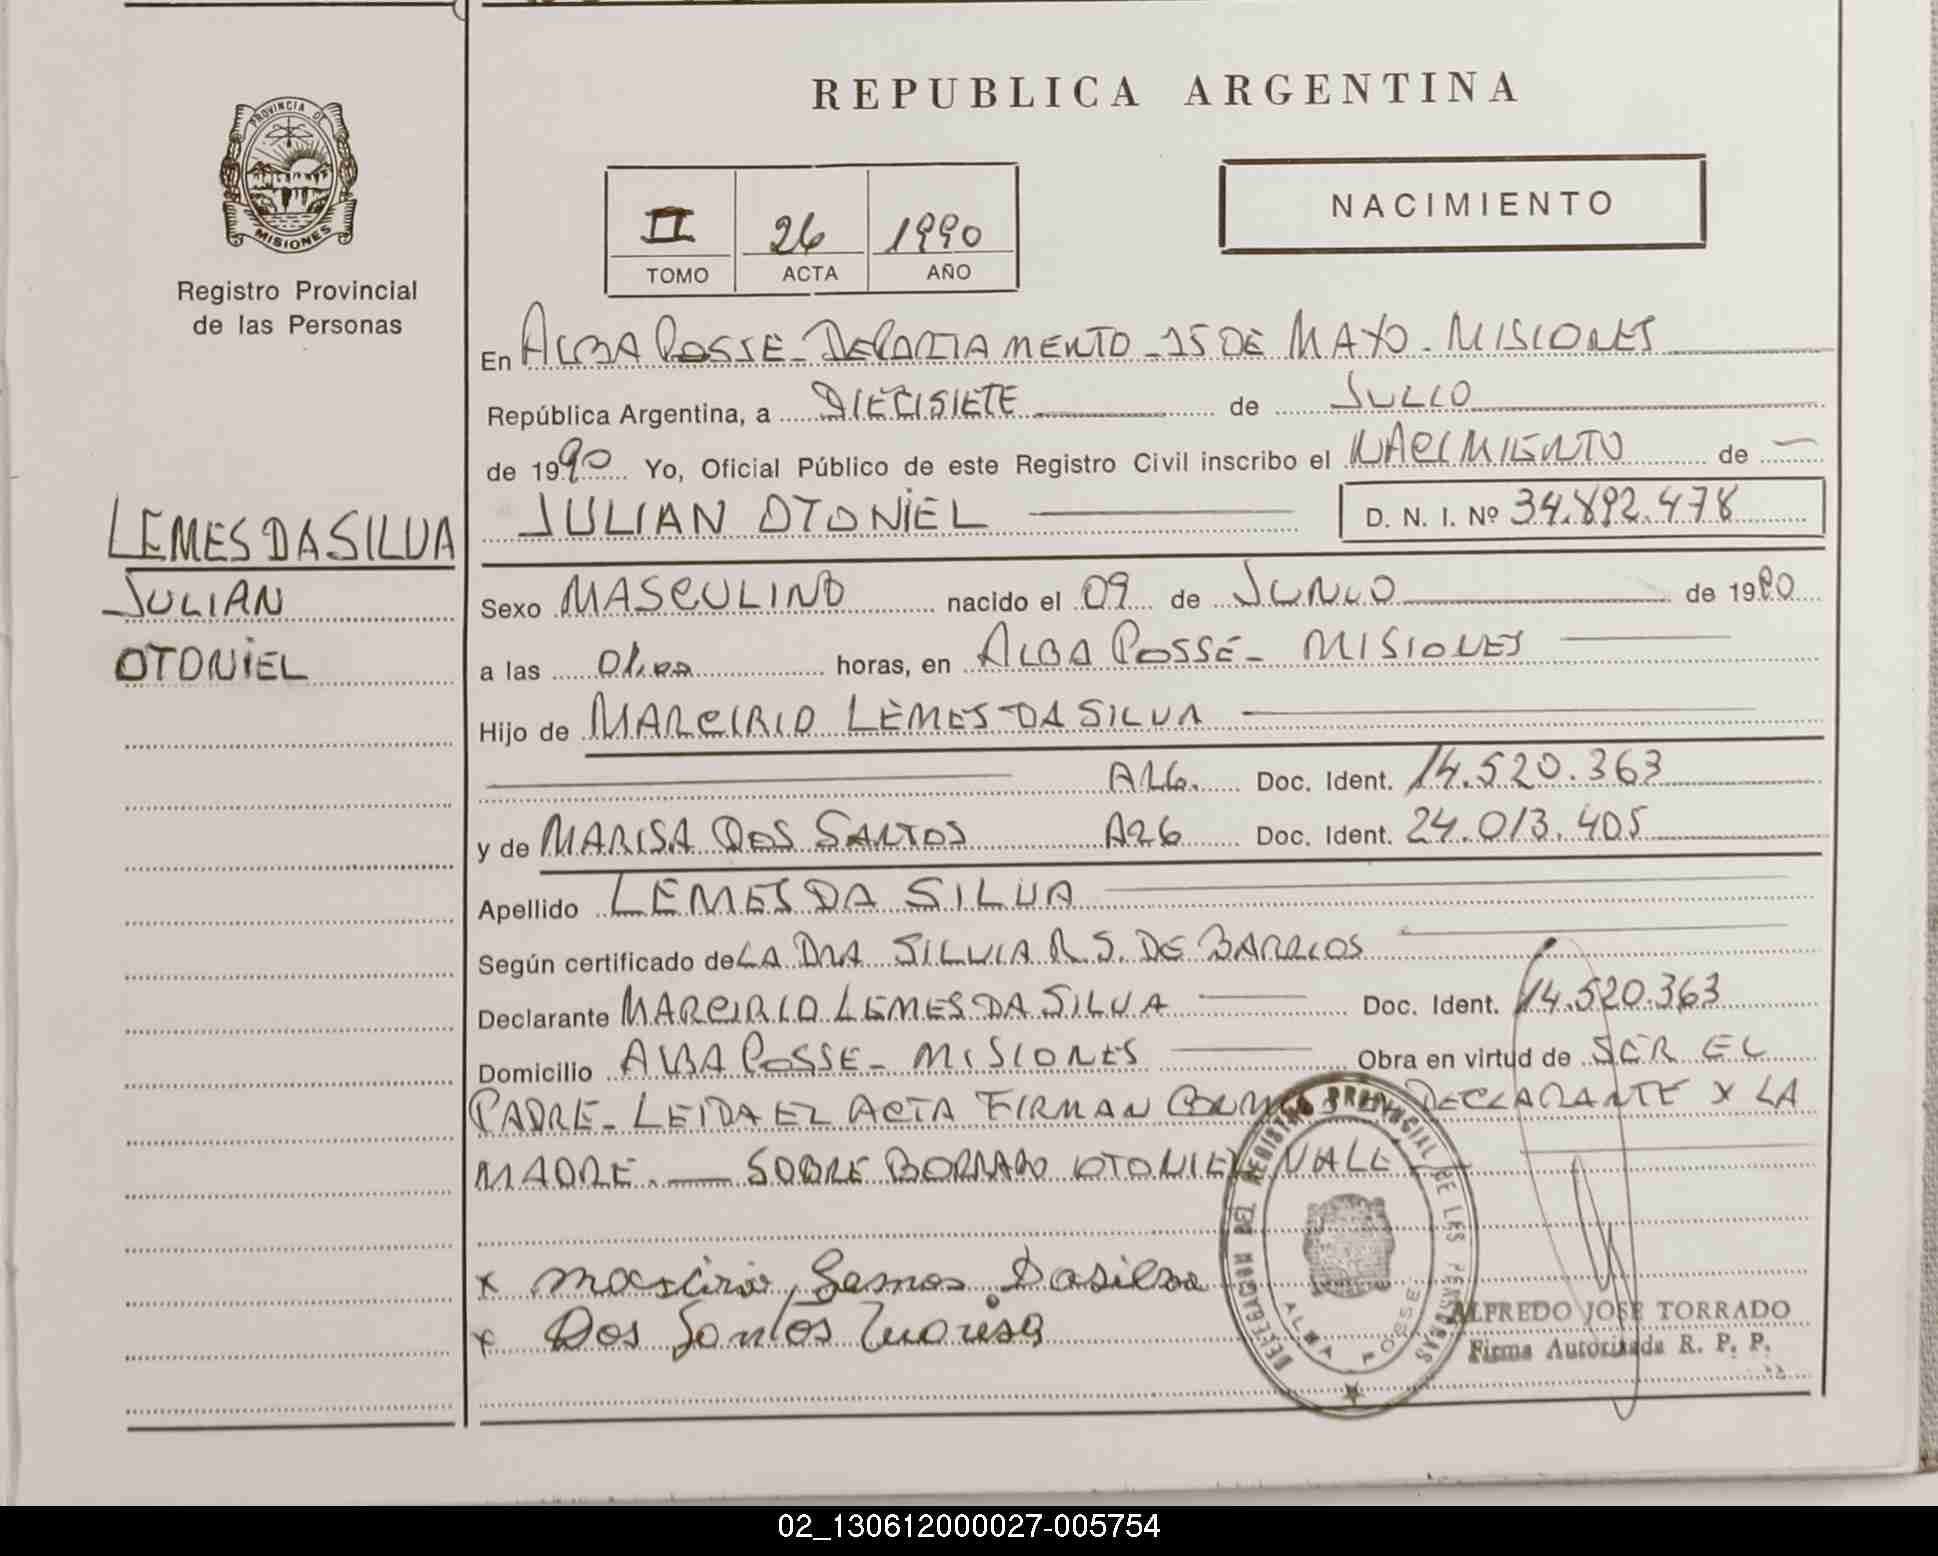 REPUBLICA ARGENTINA
PROVINCIA DE
MISIONES
Registro Provincial
de las Personas
II 26 1990
TOMO ACTA AÑO
NACIMIENTO
En ALBA POSSE - DEPARTAMENTO - 25 DE MAYO - MISIONES
República Argentina, a DIECISIETE de JULIO
de 1990 Yo, Oficial Público de este Registro Civil inscribo el NACIMIENTO de
JULIAN OTONIEL D. N. I. Nº 34.892.478
LEMES DA SILVA
JULIAN
OTONIEL
Sexo MASCULINO nacido el 09 de JUNIO de 1990
a las horas, en ALBA POSSE - MISIONES
Hijo de MARCIRIO LEMES DA SILVA
Doc. Ident. 14.520.363
y de MARISA DOS SANTOS Doc. Ident. 24.013.405
Apellido LEMES DA SILVA
Según certificado de LA DRA SILVIA R. S. DE BARRIOS
Declarante MARCIRIO LEMES DA SILVA Doc. Ident. 14.520.363
Domicilio ALBA POSSE - MISIONES Obra en virtud de SER EL
PADRE - LEIDA EL ACTA FIRMAN DECLARANTE X LA
MADRE. — SOBRE BORRADO OTONIEL VALE
x Marcirio Lemes Dasilva
x Dos Santos Marisa
DELEGACION DEL REGISTRO PROVINCIAL DE LES PERSONAS
ALBA POSSE
ALFREDO JOSE TORRADO
Firma Autorizada R. P. P.
02_130612000027-005754